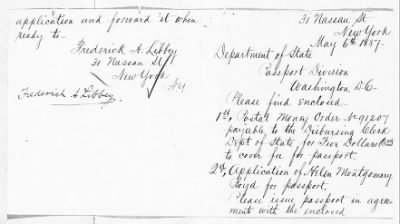 31 Nassau St
New York
May 6th 1887.
Department of State
Passport Division
Washington D.C.
Please find enclosed
1st, Postal Money Order N-91207
payable to the Disbursing Clerk
Dept of State for Five Dollars
to cover fee for passport.
2d, Application of Helen Montgomery
for passport.
Please issue passport in agree-
ment with the enclosed
application and forward it when
ready to
Frederick A. Libbey
31 Nassau St
New York
N.Y
Frederick A Libbey